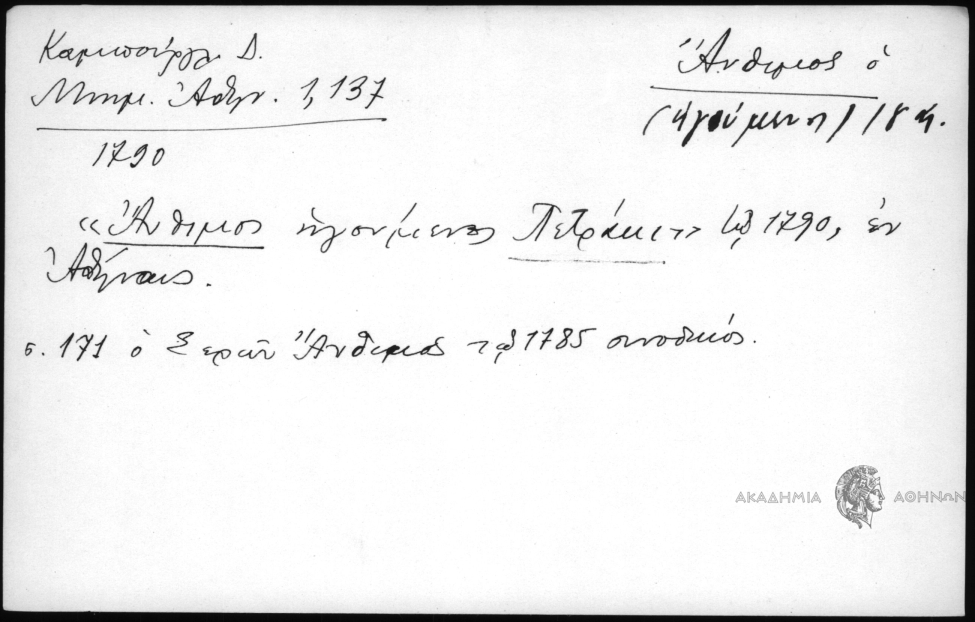 Καμπούργλ. Δ.
Μνημ. Ἀθην. 1, 137
1790
Ἄνθιμος ὁ
(ἡγούμενος) 18 ἡ.
«Ἄνθιμος ἡγούμενος Πετράκι» τῷ 1790, ἐν
Ἀθήναις.
σ. 171 ὁ Σερῶν Ἄνθιμος τῷ 1785 συνοδικός.
ΑΚΑΔΗΜΙΑ ΑΘΗΝΩΝ